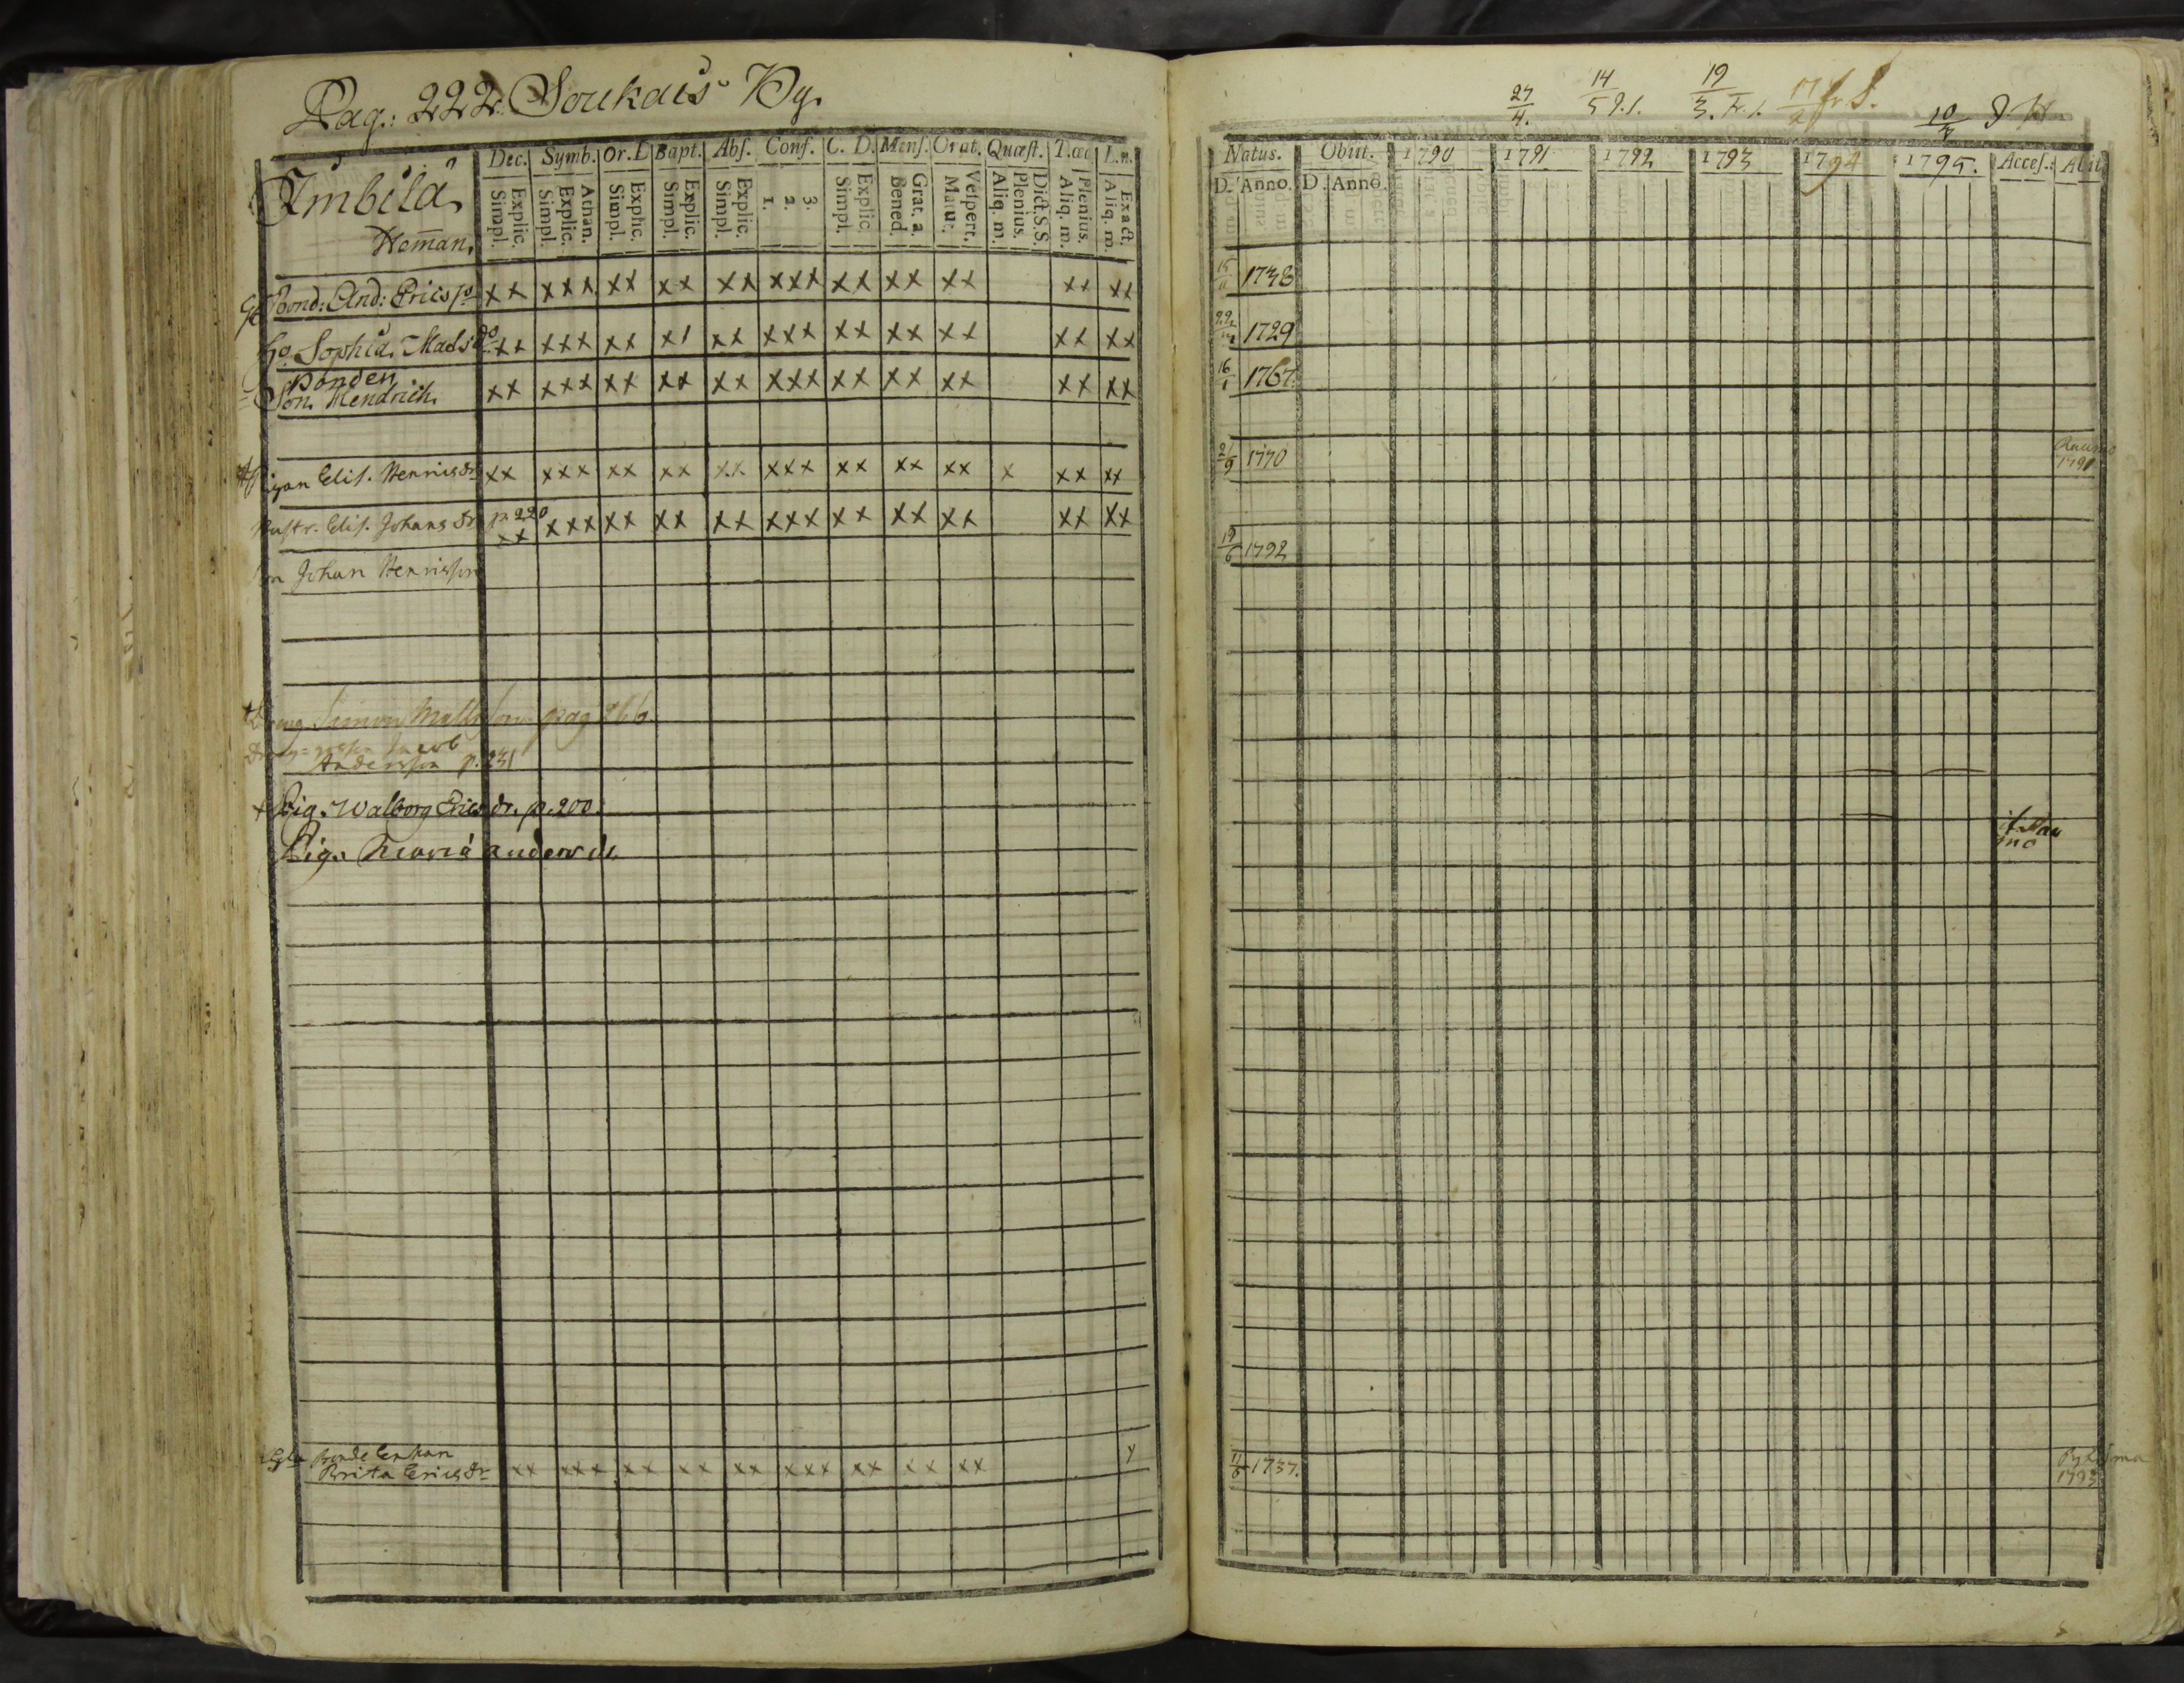 Pag: 222. Soukais By.
Imbilä
Hem̄an.
Dec. Symb. Or. D Bapt. Abs. Conf. C. D. Mens. Orat. Quæst. T. œc L. n.
Simpl. Explic. Simpl. Explic. Athan. Simpl. Explic. Simpl. Explic. Simpl. Explic. 1. 2. 3. Simpl. Explic. Bened. Grat. a. Matut. Vespert. Aliq. m. Plenius. Dict. S. S. Aliq. m. Plenius. Aliq. m. Exact.
Bond: And: Ericsso xx xxx xx xx xx xxx xx xx xx xx xx
Ho. Sophia Mads do xx xxx xx x1 xx xxx xx xx xx xx xx
bonden
Son Hendrich xx xxx xx xx xx xxx xx xx xx xx xx
Pigan Elis. Henricsdr xx xxx xx xx xx xxx xx xx xx x xx xx
Hustr. Elis. Johansdr p. 220
xx xxx xx xx xx xxx xx xx xx xx xx
Johan Henricsson
Dreng Simon Mattsson pag 266
Jacob
Andersson p. 231
+ Pig. Walborg Ericsdr. p. 200.
Pig. Maria anders d.
Enkan
Brita Ericsdr xx xxx xx xx xx xxx xx xx xx y
27/4. 14/5 J.1. 19/3. 17/2 10/3
Natus. Obiit. 1790 1791 1792 1793 1794 1795. Acces.: Abiit
D. Anno. D. Anno.
15/11 1738
22 1729
16/1 1767.
2/9 1770 Raumo
1791
19/6 1792
11/6 1737. 1793